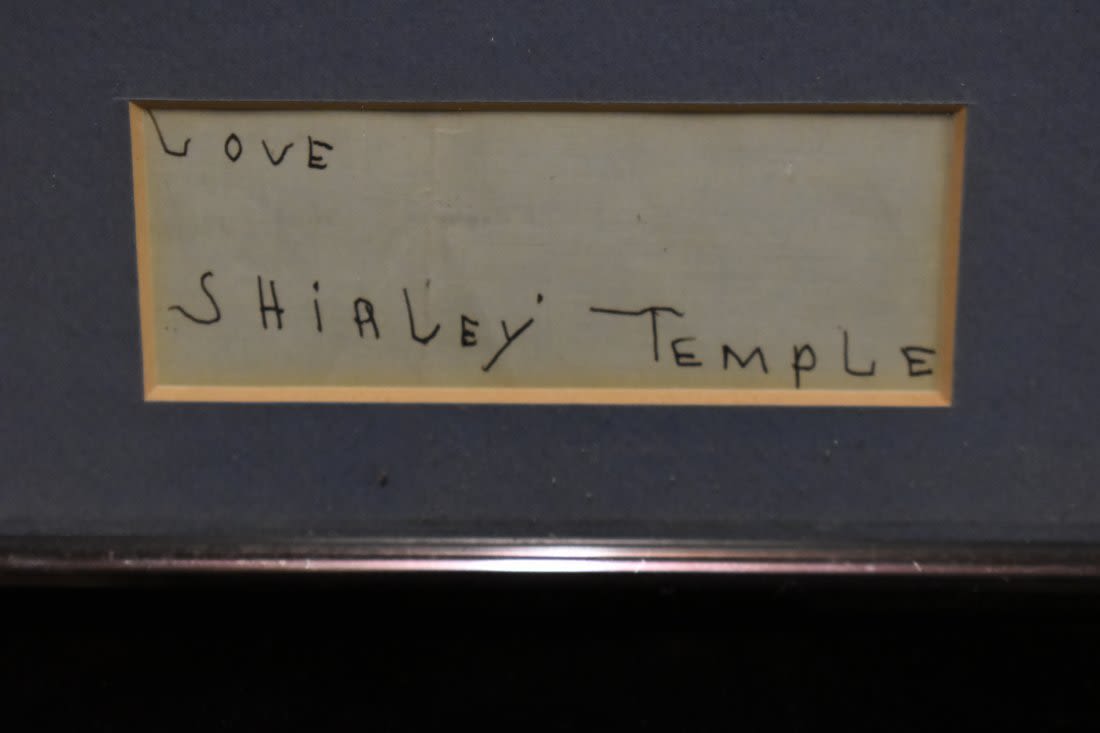 LOVE
SHiRLEY TEMPLE